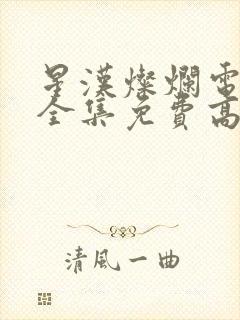 星漢燦爛電
全集免費高
清風一曲